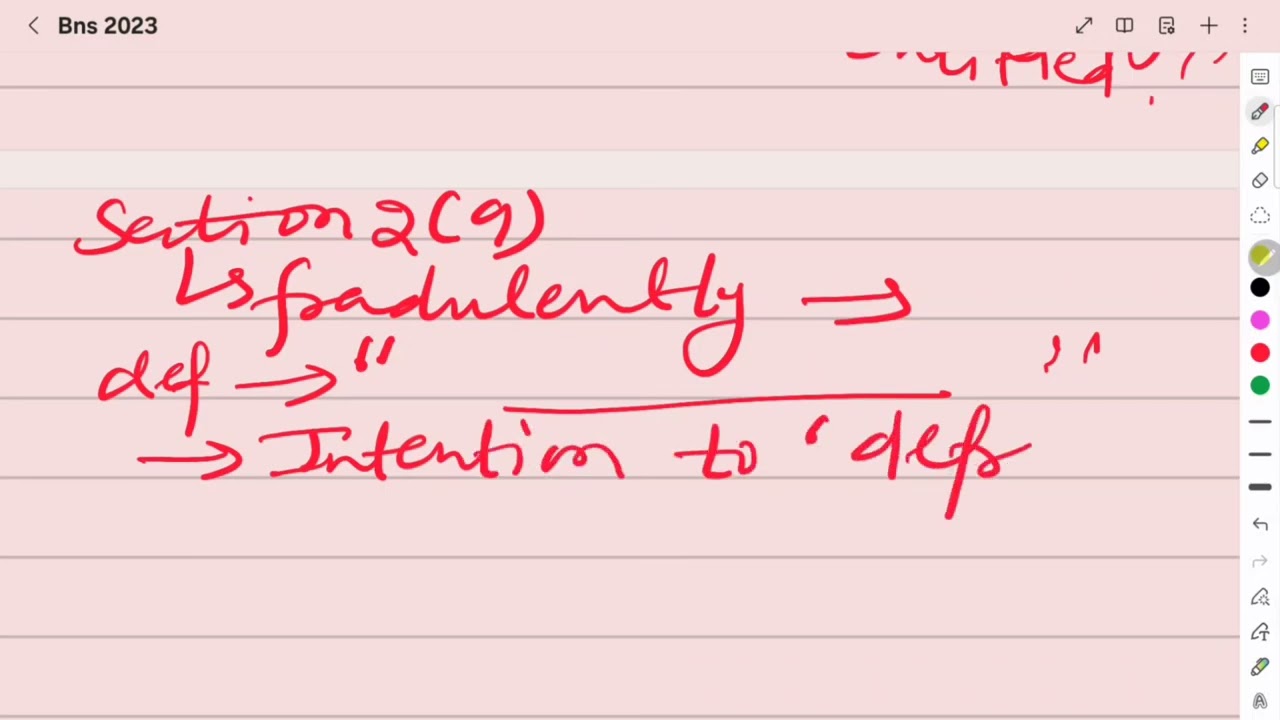 Bns 2023
Section 2(9)
↳ fradulently →
def → " "
→ Intention to ' defr